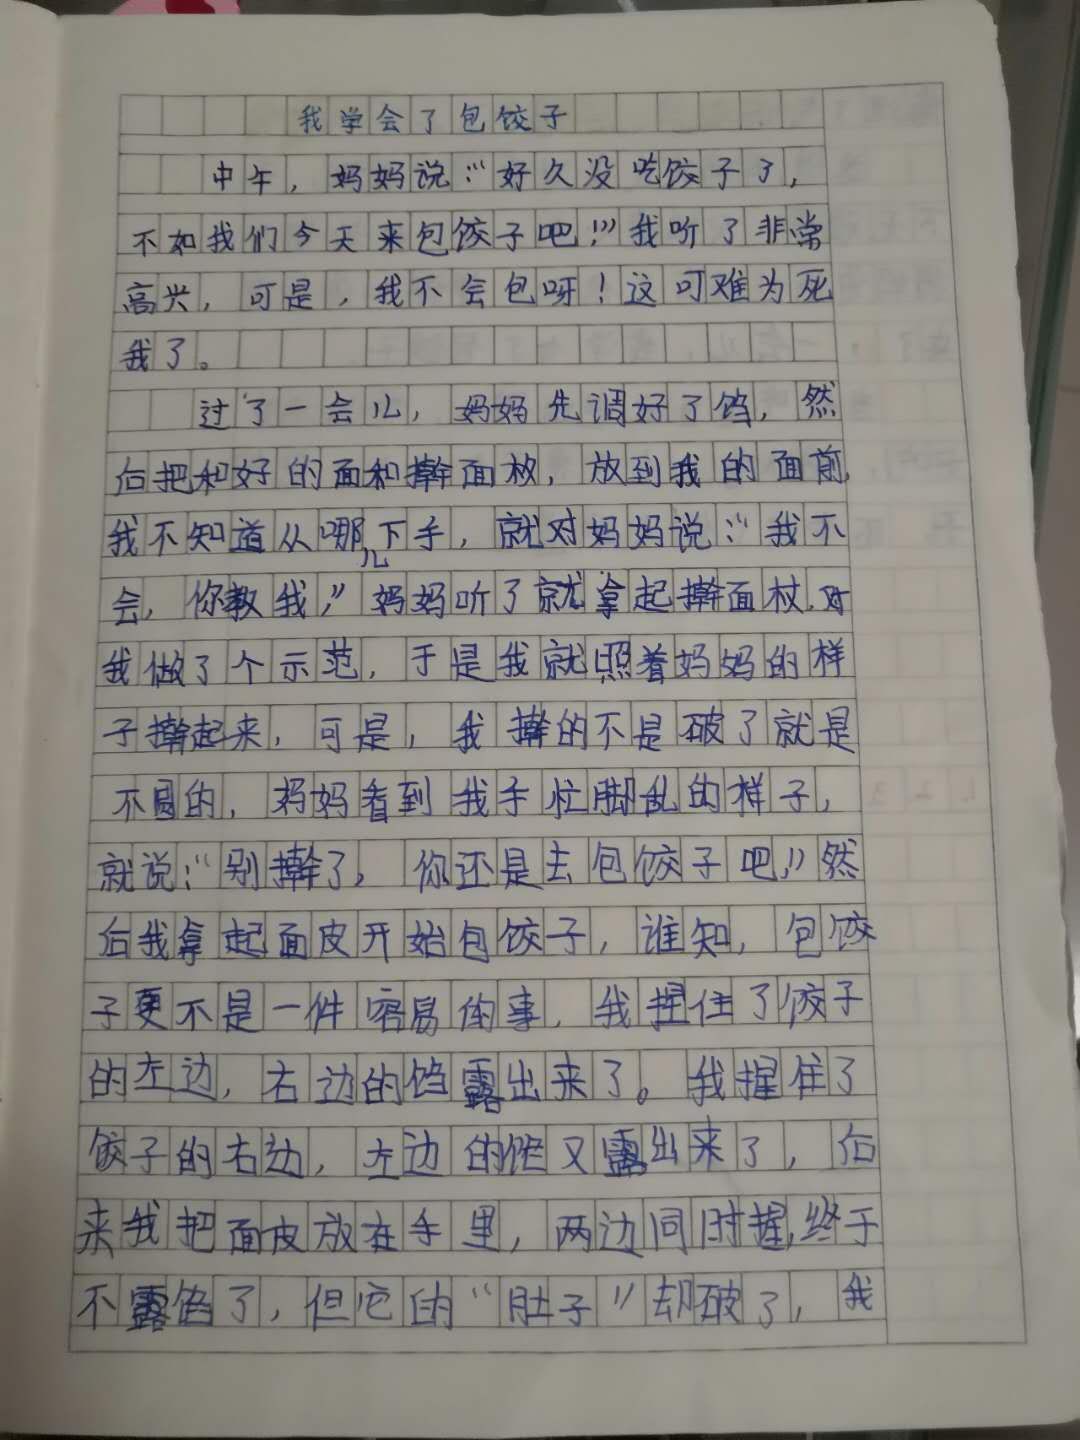 我学会了包饺子
中午，妈妈说：“好久没吃饺子了，
不如我们今天来包饺子吧！”我听了非常
高兴，可是，我不会包呀！这可难为死
我了。
过了一会儿，妈妈先调好了馅，然
后把和好的面和擀面杖，放到我的面前，
我不知道从哪儿下手，就对妈妈说：“我不
会，你教我，”妈妈听了就拿起擀面杖，对
我做了个示范，于是我就照着妈妈的样
子擀起来，可是，我擀的不是破了就是
不圆的，妈妈看到我手忙脚乱的样子，
就说：“别擀了，你还是去包饺子吧，”然
后我拿起面皮开始包饺子，谁知，包饺
子更不是一件容易的事，我捏住了饺子
的左边，右边的馅露出来了。我握住了
饺子的右边，左边的馅又露出来了，后
来我把面皮放在手里，两边同时握，终于
不露馅了，但它的“肚子”却破了，我